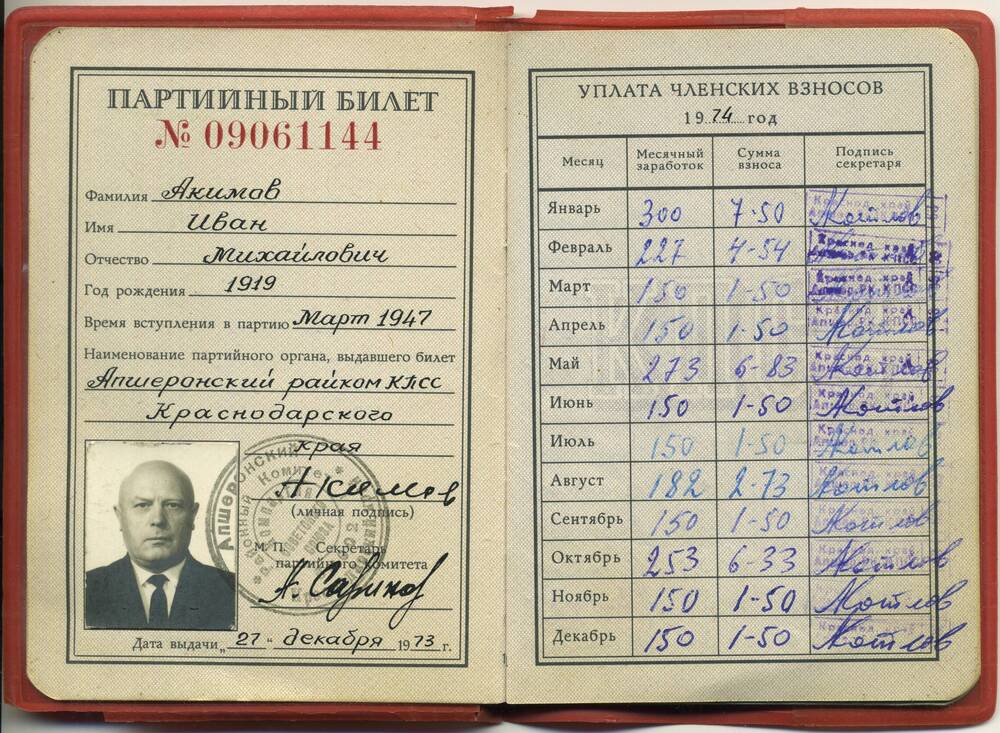 ПАРТИЙНЫЙ БИЛЕТ
№ 09061144
Фамилия Акимов
Имя Иван
Отчество Михайлович
Год рождения 1919
Время вступления в партию Март 1947
Наименование партийного органа, выдавшего билет
Апшеронский райком КПСС
Краснодарского
края
Акимов
(личная подпись)
М. П. Секретарь
партийного комитета
Дата выдачи „27“ декабря 1973 г.
УПЛАТА ЧЛЕНСКИХ ВЗНОСОВ
1974 год
Месяц Месячный заработок Сумма взноса Подпись секретаря
Январь 300 7-50 Котлов
Февраль 227 4-54
Март 150 1-50
Апрель 150 1-50 Котлов
Май 273 6-83 Котлов
Июнь 150 1-50 Котлов
Июль 150 1-50 Котлов
Август 182 2-73 Котлов
Сентябрь 150 1-50 Котлов
Октябрь 253 6-33 Котлов
Ноябрь 150 1-50 Котлов
Декабрь 150 1-50 Котлов